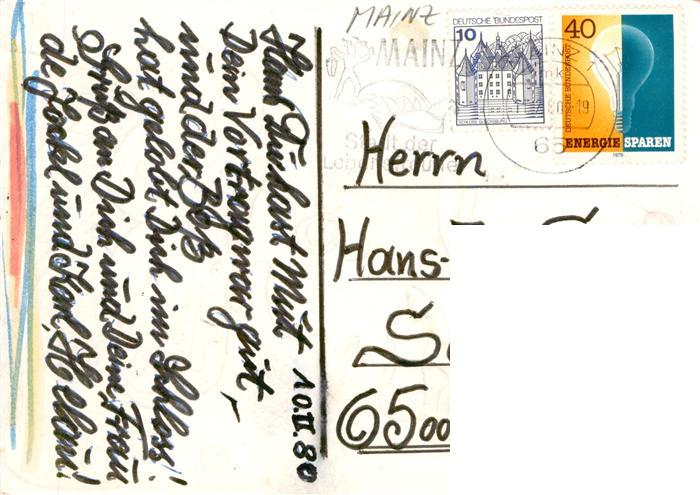 MAINZ
DEUTSCHE BUNDESPOST
10
SCHLOSS GLÜCKSBURG
40
DEUTSCHE BUNDESPOST
ENERGIE SPAREN
1979
MAINZ
80-19
65
Stadt der
Herrn
Hans-
6500
Hans Du hast Mut 10.II.80
Dein Vortrag war gut,
und der Boß
hat gelobt Dich im Schloss!
Gruß an Dich und Deine Frau
de Jockl und Karl, Hellau!